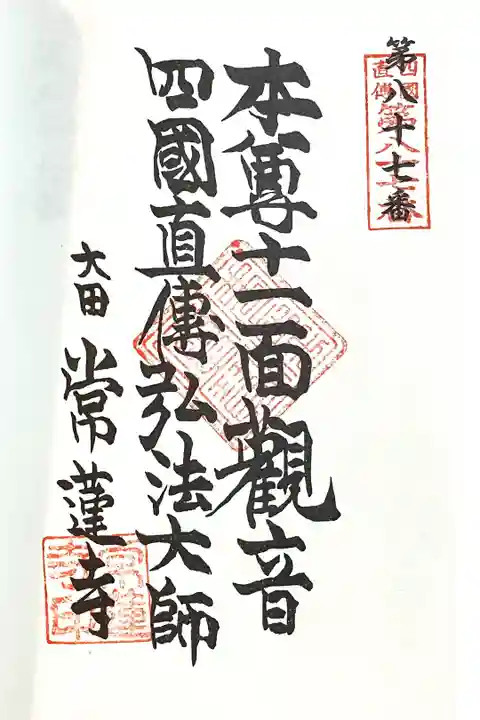 第八十七番
四國
直傳
第八十七番
本尊十一面觀音
四國直傳弘法大師
大田
常蓮寺